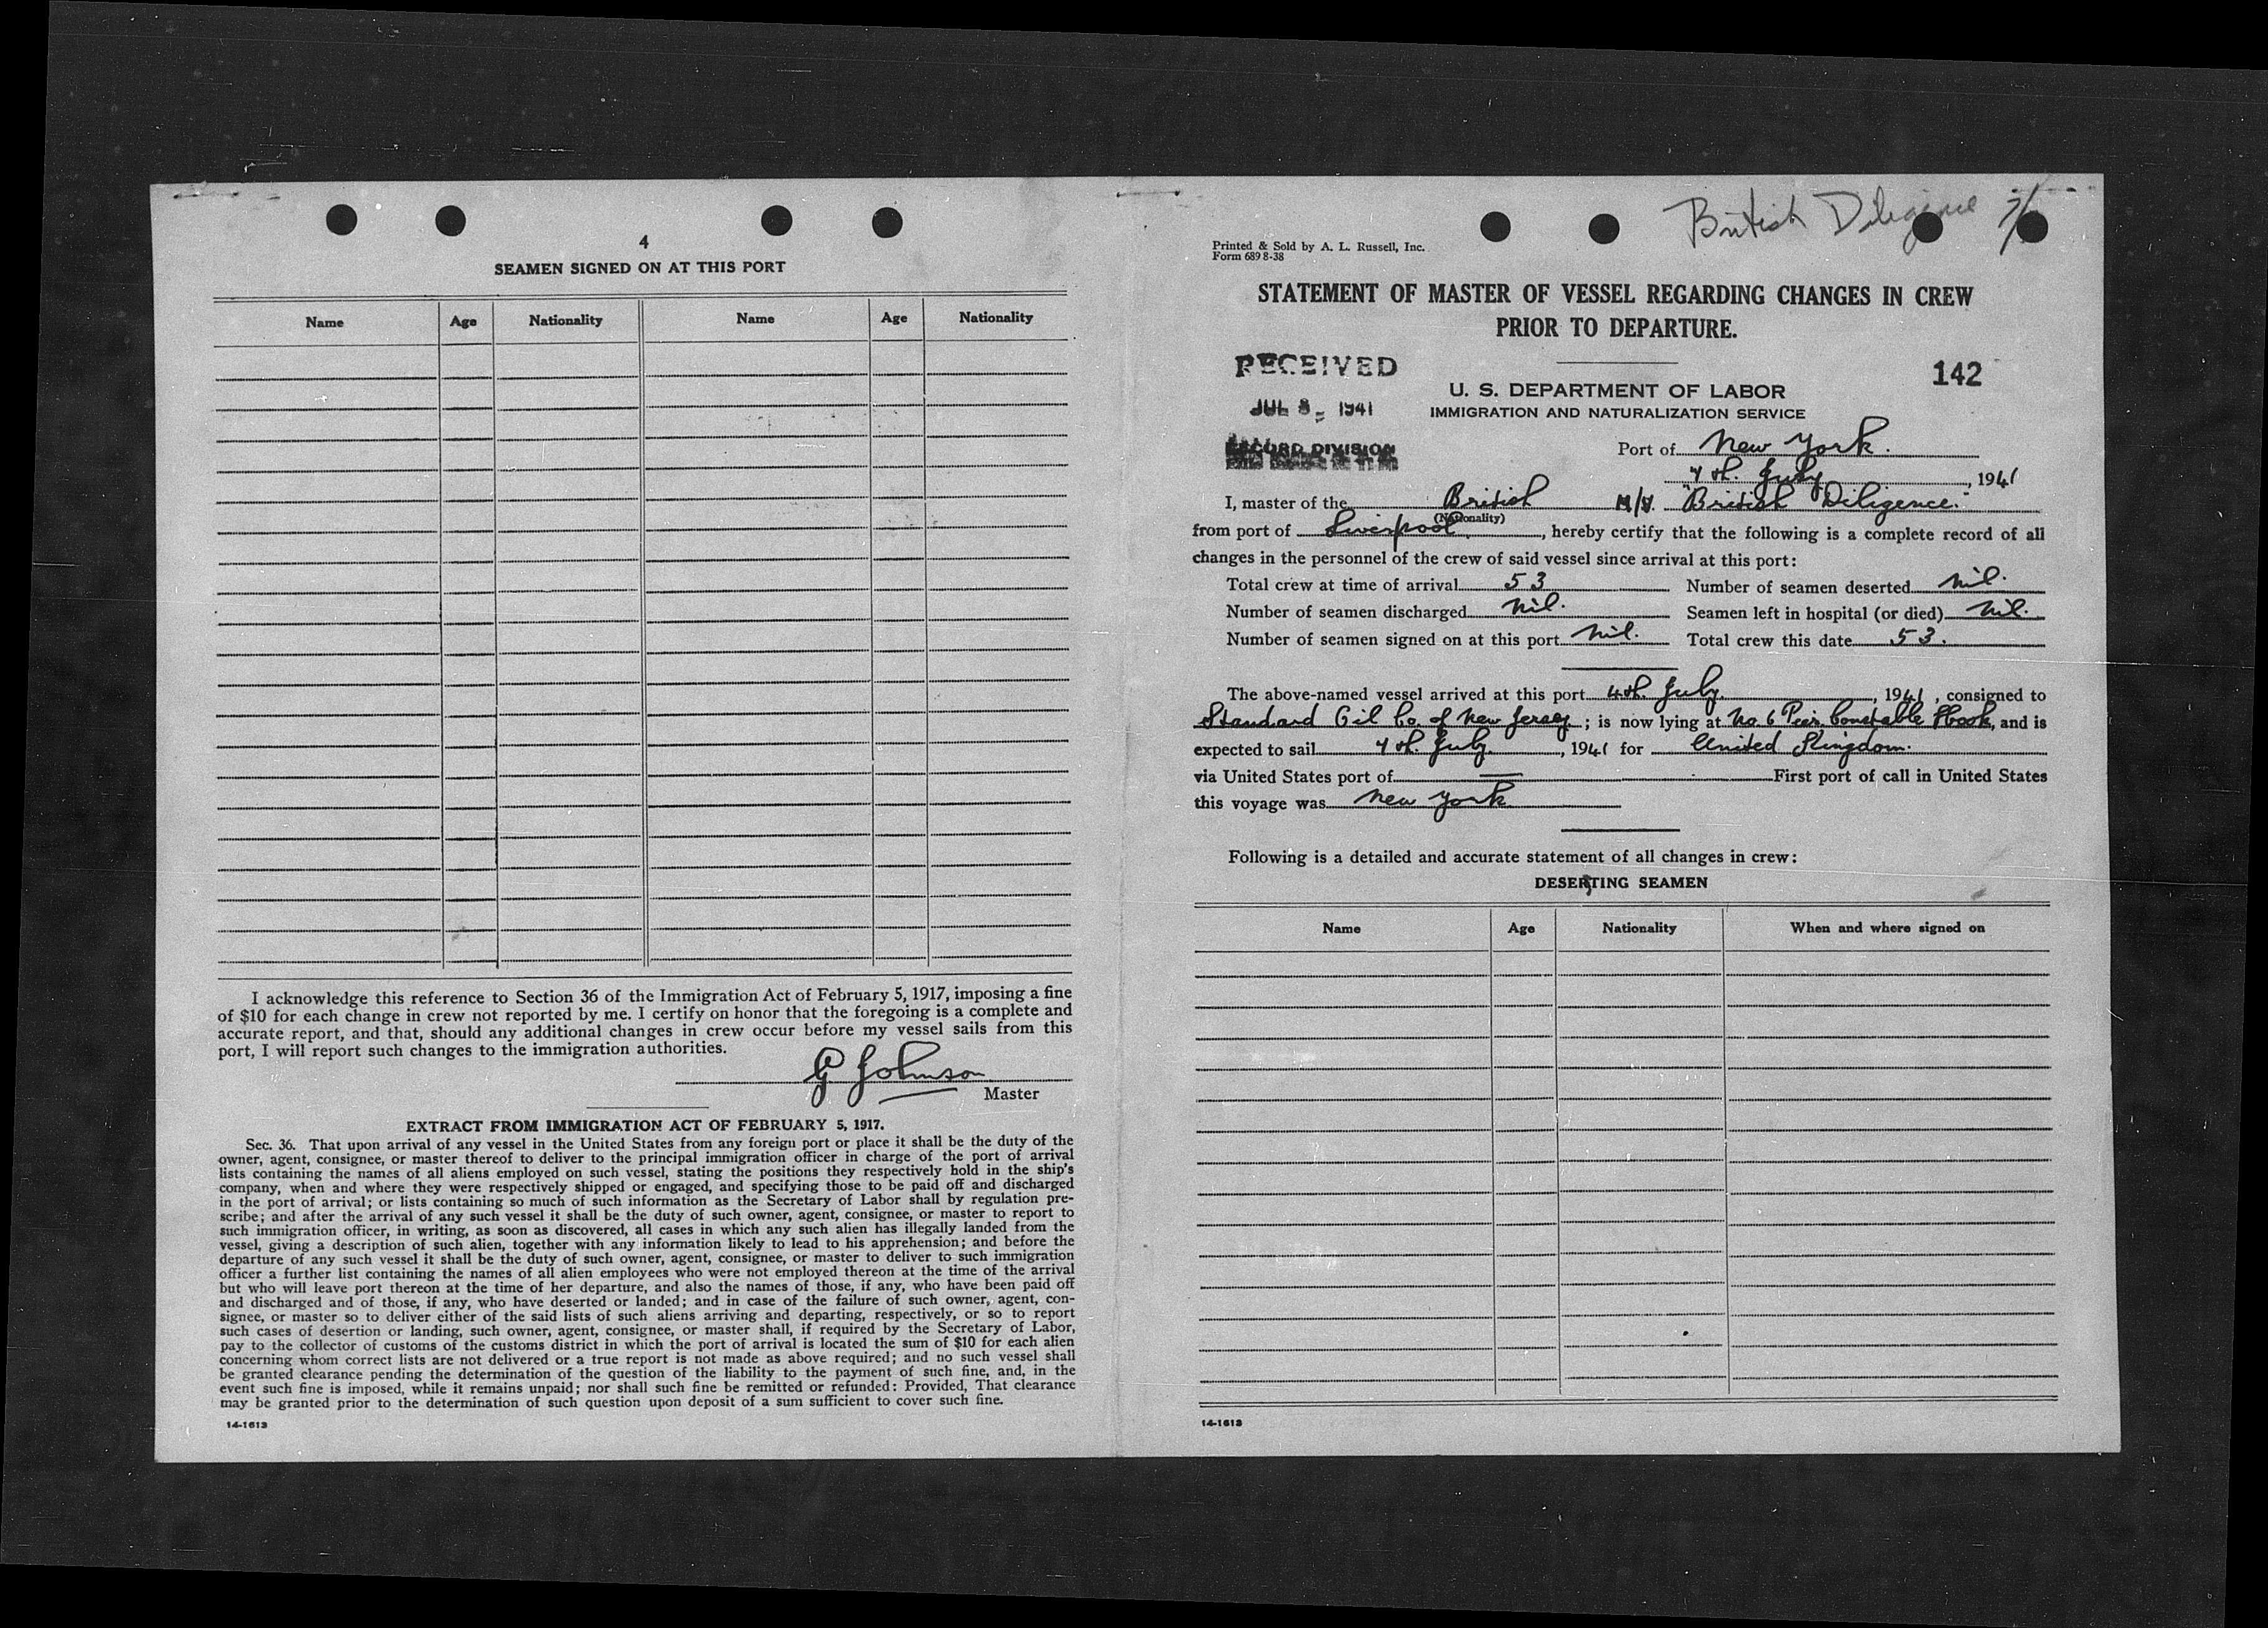 4
SEAMEN SIGNED ON AT THIS PORT
Name Age Nationality Name Age Nationality
I acknowledge this reference to Section 36 of the Immigration Act of February 5, 1917, imposing a fine
of $10 for each change in crew not reported by me. I certify on honor that the foregoing is a complete and
accurate report, and that, should any additional changes in crew occur before my vessel sails from this
port, I will report such changes to the immigration authorities.
G Johnson
Master
EXTRACT FROM IMMIGRATION ACT OF FEBRUARY 5, 1917.
Sec. 36. That upon arrival of any vessel in the United States from any foreign port or place it shall be the duty of the
owner, agent, consignee, or master thereof to deliver to the principal immigration officer in charge of the port of arrival
lists containing the names of all aliens employed on such vessel, stating the positions they respectively hold in the ship's
company, when and where they were respectively shipped or engaged, and specifying those to be paid off and discharged
in the port of arrival; or lists containing so much of such information as the Secretary of Labor shall by regulation pre-
scribe; and after the arrival of any such vessel it shall be the duty of such owner, agent, consignee, or master to report to
such immigration officer, in writing, as soon as discovered, all cases in which any such alien has illegally landed from the
vessel, giving a description of such alien, together with any information likely to lead to his apprehension; and before the
departure of any such vessel it shall be the duty of such owner, agent, consignee, or master to deliver to such immigration
officer a further list containing the names of all alien employees who were not employed thereon at the time of the arrival
but who will leave port thereon at the time of her departure, and also the names of those, if any, who have been paid off
and discharged and of those, if any, who have deserted or landed; and in case of the failure of such owner, agent, con-
signee, or master so to deliver either of the said lists of such aliens arriving and departing, respectively, or so to report
such cases of desertion or landing, such owner, agent, consignee, or master shall, if required by the Secretary of Labor,
pay to the collector of customs of the customs district in which the port of arrival is located the sum of $10 for each alien
concerning whom correct lists are not delivered or a true report is not made as above required; and no such vessel shall
be granted clearance pending the determination of the question of the liability to the payment of such fine, and, in the
event such fine is imposed, while it remains unpaid; nor shall such fine be remitted or refunded: Provided, That clearance
may be granted prior to the determination of such question upon deposit of a sum sufficient to cover such fine.
14-1613
British Diligence
Printed & Sold by A. L. Russell, Inc.
Form 689 8-38
STATEMENT OF MASTER OF VESSEL REGARDING CHANGES IN CREW
PRIOR TO DEPARTURE.
RECEIVED
JUL 8 - 1941
RECORD DIVISION
142
U. S. DEPARTMENT OF LABOR
IMMIGRATION AND NATURALIZATION SERVICE
Port of New York.
7th. July, 1941
I, master of the British M/V. "British Diligence."
(Nationality)
from port of Liverpool, hereby certify that the following is a complete record of all
changes in the personnel of the crew of said vessel since arrival at this port:
Total crew at time of arrival 53 Number of seamen deserted nil.
Number of seamen discharged nil. Seamen left in hospital (or died) nil.
Number of seamen signed on at this port nil. Total crew this date 53.
The above-named vessel arrived at this port 4th. July, 1941, consigned to
Standard Oil Co. of New Jersey; is now lying at No. 6 Pier. Constable Hook, and is
expected to sail 7th. July, 1941 for United Kingdom.
via United States port of — First port of call in United States
this voyage was New York
Following is a detailed and accurate statement of all changes in crew:
DESERTING SEAMEN
Name Age Nationality When and where signed on
14-1613